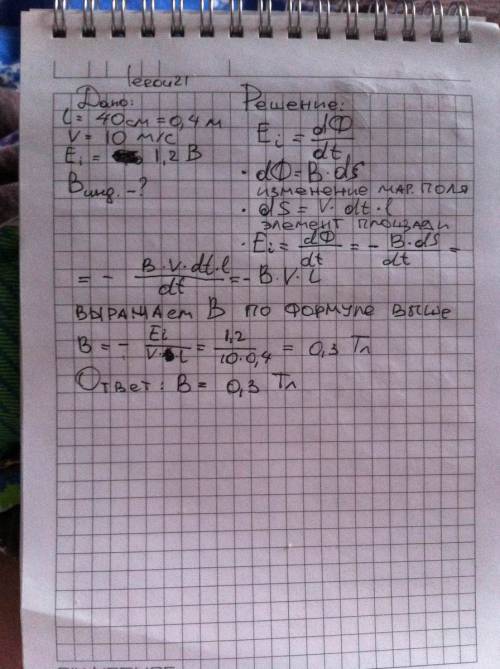 Leeou21
Дано:
l = 40 см = 0,4 м
V = 10 м/с
Ei = 1,2 В
Bинд. - ?
Решение:
Ei = dФ/dt
· dФ = B · dS
изменение маг. поля
· dS = V · dt · l
элемент площади
· Ei = dФ/dt = - B·dS/dt =
= - B·V·dt·l/dt = - B·V·l
выражаем B по формуле выше
B = - Ei/V·l = 1,2/10·0,4 = 0,3 Тл
Ответ: B = 0,3 Тл